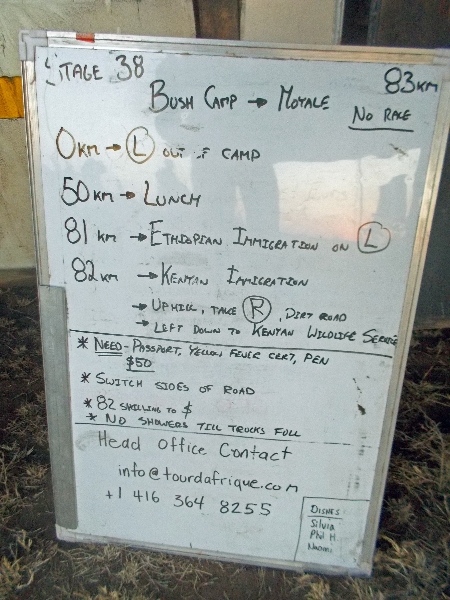 STAGE 38
83KM
BUSH CAMP → MOYALE
NO RACE
0KM → L OUT OF CAMP
50KM → LUNCH
81 KM → ETHIOPIAN IMMIGRATION ON L
82KM → KENYAN IMMIGRATION
→ UPHILL, TAKE R, DIRT ROAD
→ LEFT DOWN TO KENYAN WILDLIFE SERVICE
* NEED - PASSPORT, YELLOW FEVER CERT, PEN
$50
* SWITCH SIDES OF ROAD
* 82 SHILLING TO $
* NO SHOWERS TILL TRUCKS FULL
Head Office Contact
info@tourdafrique.com
+1 416 364 8255
DISHES
Silvia
Phil H.
Naomi